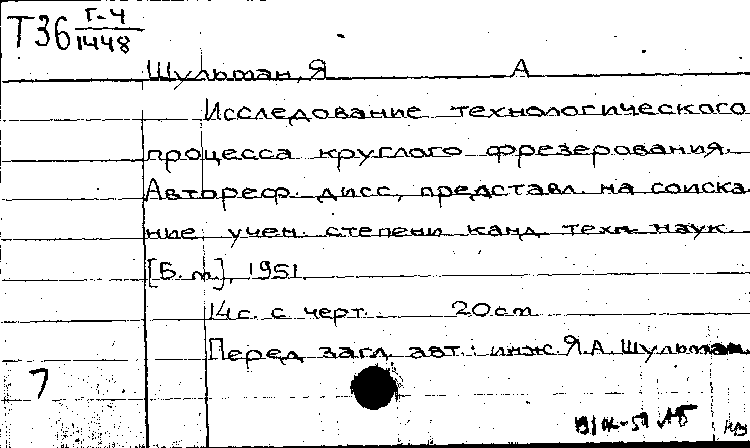 Т36 Г-4
1448
Шульман, Я А
Исследование технологического
процесса круглого фрезерования.
Автореф. дисс, представл. на соиска
ние учен. степени канд. техн. наук
[Б. м.], 1951.
14 с. с черт. 20 cm
Перед загл. авт.: инж. Я.А. Шульман.
7